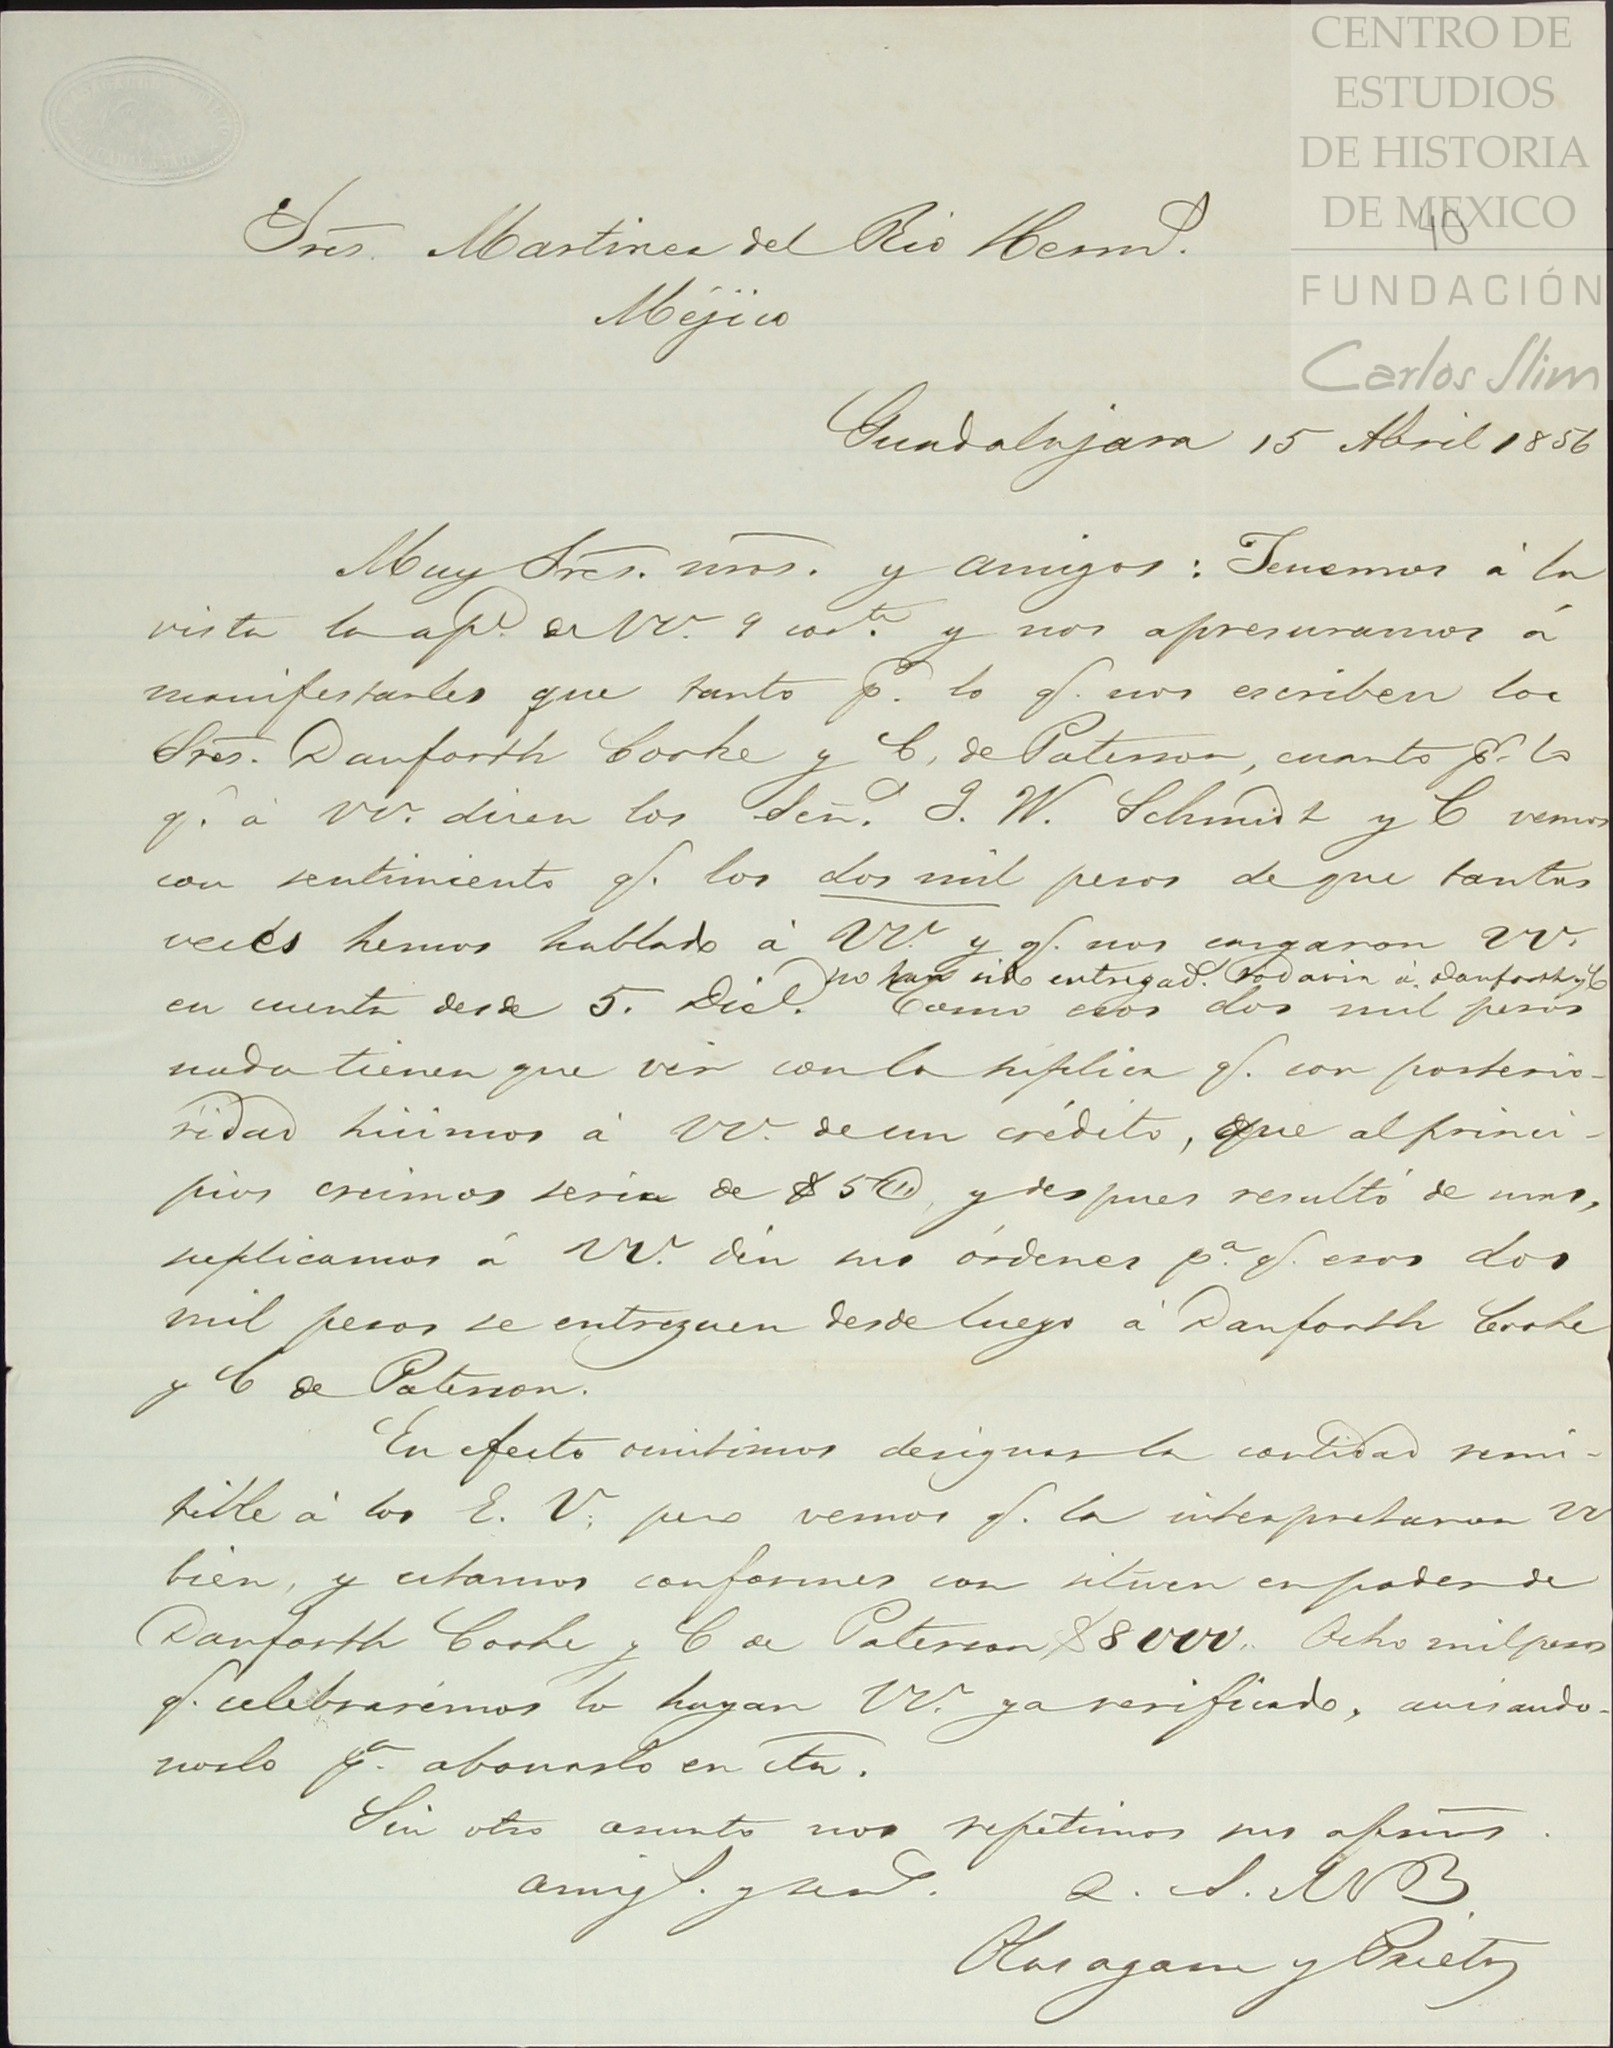 CENTRO DE
ESTUDIOS
DE HISTORIA
DE MEXICO
40
FUNDACIÓN
Carlos Slim
Sres. Martinez del Rio Herms.
Méjico
Guadalajara 15 Abril 1856
Muy Sres. nros. y amigos: Tenemos á la
vista la apda. de VV. 9 corte. y nos apresuramos á
manifestarles que tanto pr. lo q. nos escriben los
Sres. Danforth Cooke y C. de Paterson, cuanto pr. lo
q. á VV. dicen los Señs. J. W. Schmidt y C vemos
con sentimiento q. los dos mil pesos de que tantas
veces hemos hablado á VV. y q. nos cargaron VV.
no han sido entregads. todavia á Danforth y C
en cuenta desde 5. Dice. Como esos dos mil pesos
nada tienen que ver con la súplica q. con posterio-
ridad hicimos á VV. de un crédito, que al princi-
pios creimos seria de $5 y despues resultó de mas,
suplicamos á VV. dén sus órdenes pa. q. esos dos
mil pesos se entreguen desde luego á Danforth Cooke
y C de Paterson.
En efecto omitimos designar la cantidad remi-
tible á los E. V; pero vemos q. la interpretaron VV
bien, y estamos conformes con situen en poder de
Danforth Cooke y C de Paterson $8000.. Ocho mil pesos
q. celebrarémos lo hayan VV. ya verificado, avisando-
noslo pa. abonarlo en cta.
Sin otro asunto nos repetimos sus apmos.
amigs. y servs. Q. S. M B
Olasagarre y Prieto